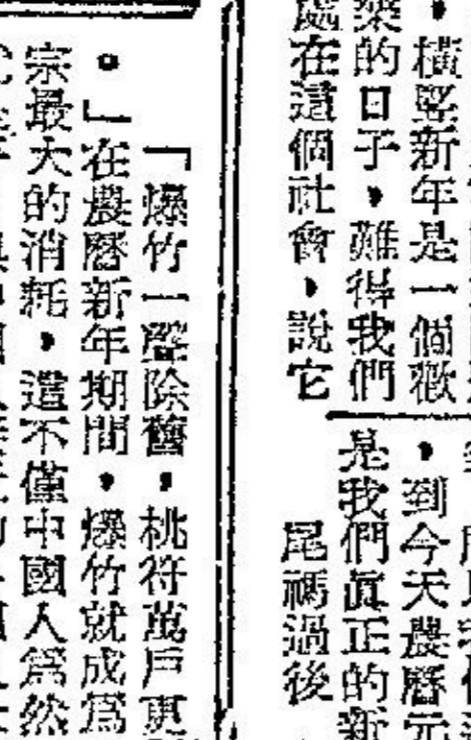 ，橫竪新年是一個歡
樂的日子，難得我們
處在這個社會，說它
，到今天農曆元
是我們眞正的新
尾禡過後
「爆竹一聲除舊，桃符萬戶更
。」在農曆新年期間，爆竹就成爲
宗最大的消耗，這不僅中國人爲然